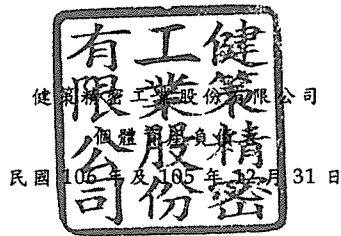 健策精密
工業股份
有限公司
健策精密工業股份有限公司
個體資產負債表
民國 106 年及 105 年 12 月 31 日